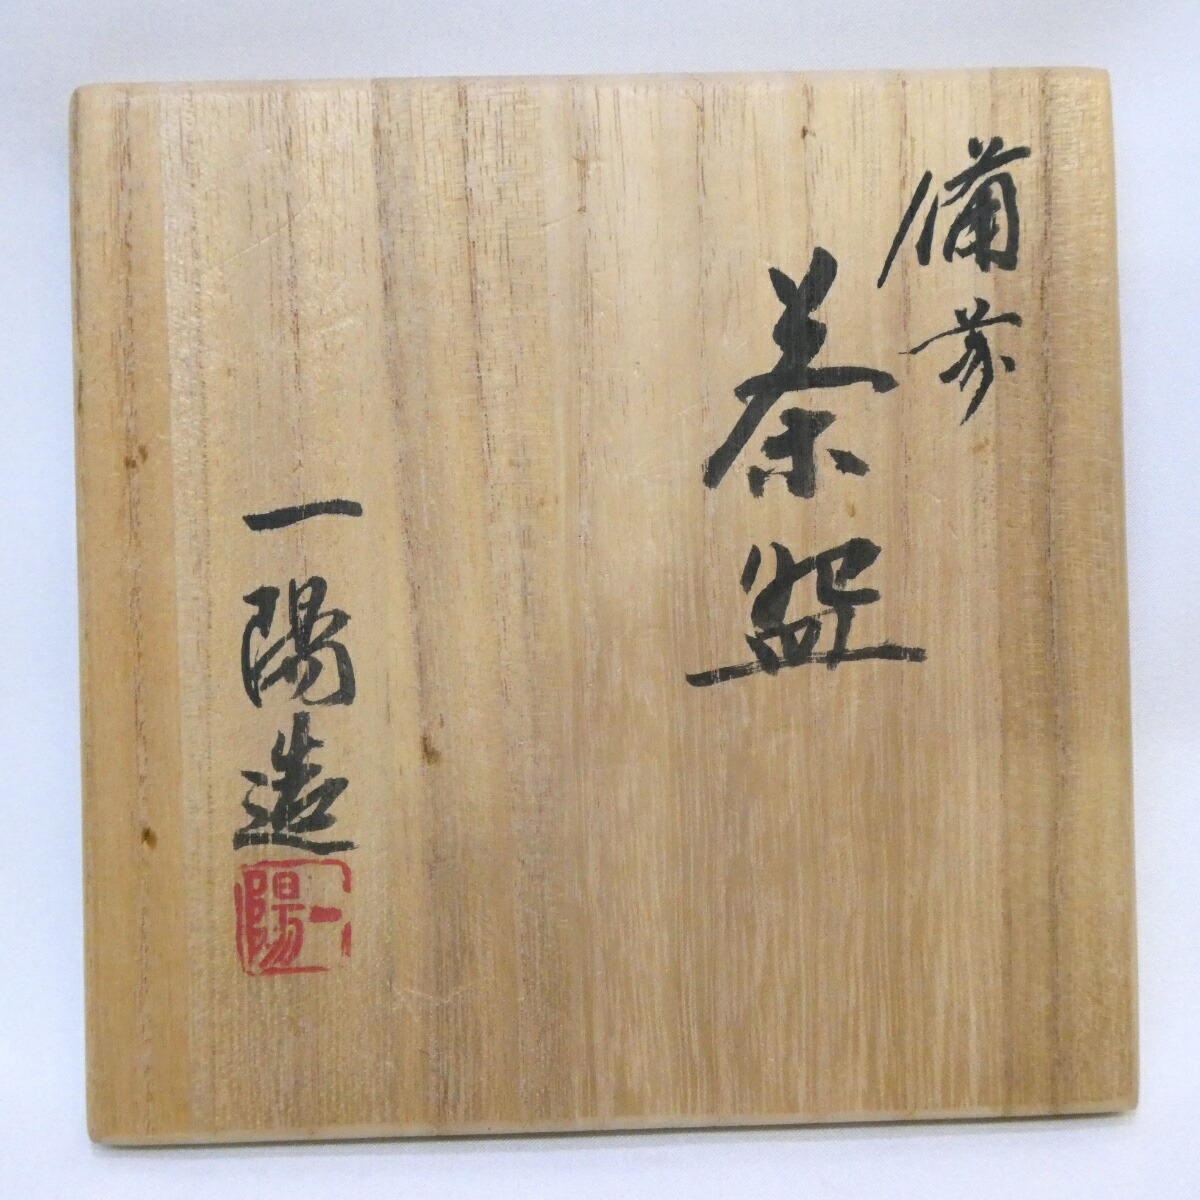 備前
茶盌
一陽造
一陽